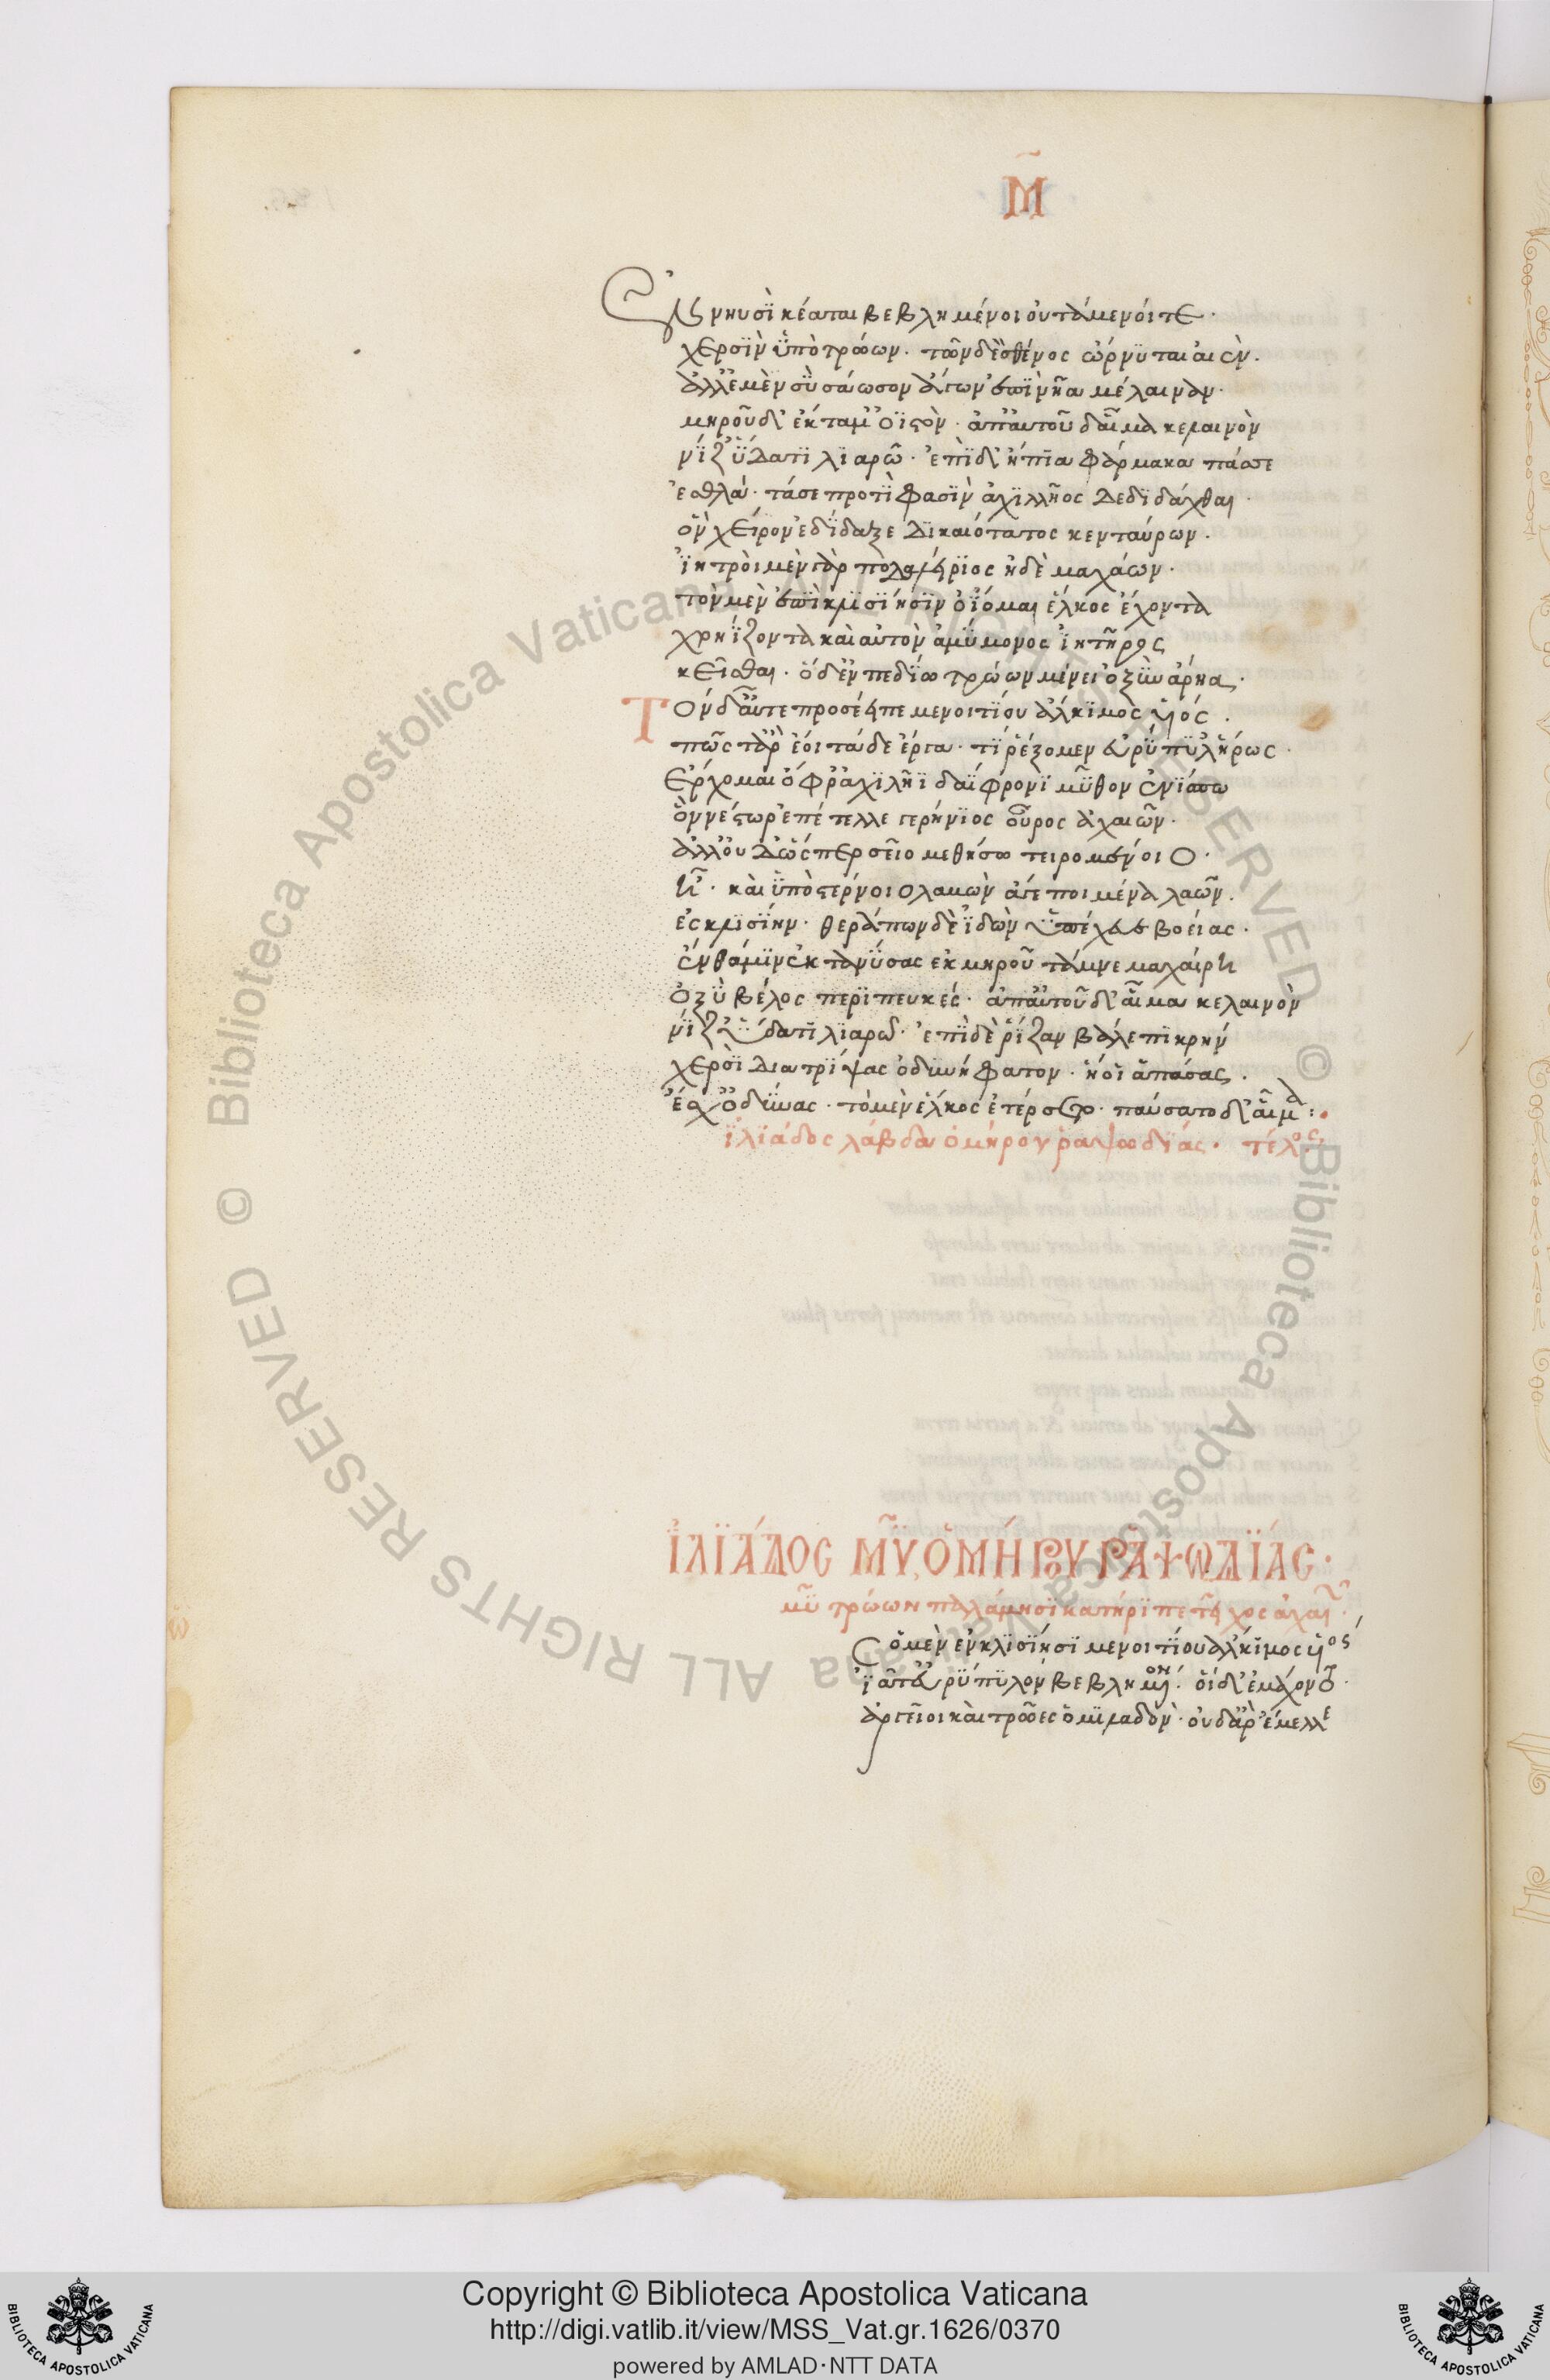 Μ̃
Ἐν νηυσὶ κέαται βεβλημένοι οὐτάμενοί τε·
χερσὶν ὑπὸ τρώων· τῶν δὲ σθένος ὤρνυται αἰὲν.
ἀλλ' ἐμὲν σὺ σάωσον ἄγων ἐπὶ νῆα μέλαιναν·
μηροῦ δ' ἔκταμ' ὀϊστὸν· ἀπ' αυτοῦ δ' αἷμα κελαινὸν
νίζ' ὕδατι λιαρῶ· ἐπὶ δ' ἤπια φάρμακα πάσσε
ἐσθλά· τάσε προτὶ φασὶν ἀχιλλῆος δεδιδάχθαι·
ὃν χείρον ἐδίδαξε δικαιότατος κενταύρων·
ἰητροὶ μὲν γὰρ ποδαλείριος ἠδὲ μαχάων·
τὸν μὲν ἐπὶ κλισίησιν ὀΐομαι ἕλκος ἔχοντα
χρηΐζοντα καὶ αὐτὸν ἀμύμονος ἰητῆρος
κεῖσθαι· ὁ δ' ἐν πεδίω τρώων μένει ὀξὺν ἄρηα·
Τὸν δ' αὖτε προσέειπε μενοιτίου ἄλκιμος υἱός·
πῶς τὰρ ἔοι τάδε ἔργα· τί ῥέξομεν εὐρύπυλ' ἥρως·
ἔρχομαι ὄφρ' ἀχιλῆϊ δαΐφρονι μῦθον ἐνίσπω
ὃν νέστωρ ἐπέτελλε γερήνιος οὖρος ἀχαιῶν·
ἀλλ' οὐδ' ὥς περ σεῖο μεθήσω τειρομένοιο·
ἦ· καὶ ὑπὸ στέρνοιο λαβὼν ἄγε ποιμένα λαῶν·
ἐς κλισίην· θεράπων δὲ ἰδὼν ὑπέχευε βοείας·
ἔνθά μιν ἐκτανύσας ἐκ μηροῦ τάμνε μαχαίρη
ὀξὺ βέλος περιπευκές· ἀπ' αὐτοῦ δ' αἷμα κελαινὸν
νίζ' ὕδατι λιαρῶ· ἐπὶ δὲ ῥίζαν βάλε πικρὴν
χερσὶ διατρίψας ὀδυνήφατον· ἥ οἱ ἁπάσας·
ἔσχ' ὀδύνας· τὸ μὲν ἕλκος ἐτέρσετο· παύσατο δ' αἷμα:·
ἰλιάδος λάβδα ὁμήρου ῥαψωδίας· τέλος
ἸΛΙΆΔΟΣ ΜΥ͂, ὉΜΉΡΟΥ ῬΑΨΩΔΊΑΣ·
μῦ τρώων παλάμησι κατήριπε τεῖχος ἀχαιῶν·
Ὣς ὁ μὲν ἐν κλισίησι μενοιτίου ἄλκιμος υἱός
ἰᾶτ' εὐρύπυλον βεβλημένον· οἱ δ' ἐμάχοντο·
ἀργεῖοι καὶ τρῶες ὁμιλαδὸν· οὐδ' ἂρ' ἔμελλε
Copyright © Biblioteca Apostolica Vaticana
http://digi.vatlib.it/view/MSS_Vat.gr.1626/0370
powered by AMLAD·NTT DATA
© Biblioteca Apostolica Vaticana ALL RIGHTS RESERVED
© Biblioteca Apostolica Vaticana ALL RIGHTS RESERVED
BIBLIOTECA APOSTOLICA VATICANA
BIBLIOTECA APOSTOLICA VATICANA